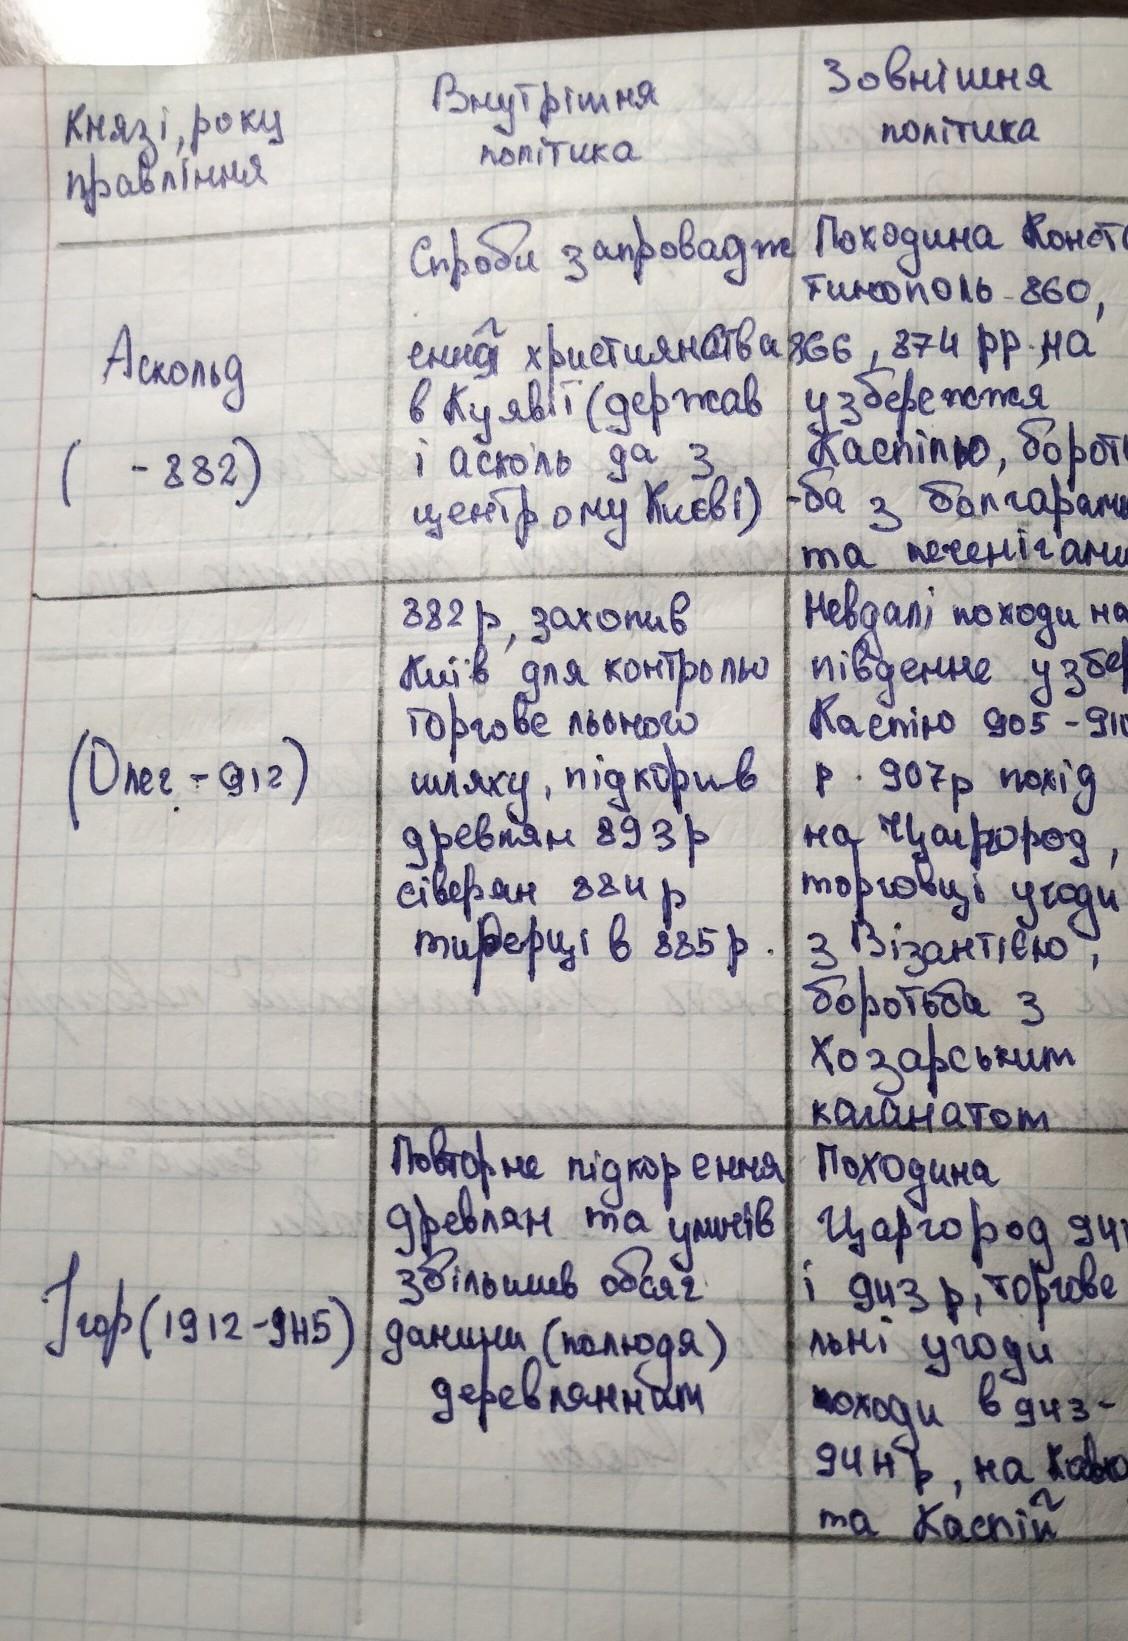 Князі, року
правління
Внутрішня
політика
Зовнішня
політика
Аскольд
( -882)
Спроби запровадж
ення християнства
в Куявії (держав
і асколь да з
центр ому Києві)
Походина Конст
тинополь 860,
866, 874 рр. на
узбережжя
Каспілю, бороть
-ба з болгарами
та печенігами
(Олег - 912)
882р, захопив
Київ для контролю
торгове льного
шляху, підкорив
древлян 893р
сіверян 884р
тиверці в 885р.
Невдалі походи на
південне узбер
Каспію 905-910
р. 907р похід
на Царгород,
торговці угоди
з Візантією,
боротьба з
Хозарським
каганатом
Ігор (1912-945)
Повторне підкорення
древлян та уличів
збільшив обсяг
данини (полюдя)
деревлянним
Походина
Царгород 941
і 943р, торгове
льні угоди
походи в 943-
944р, на Кавка
та Каспій